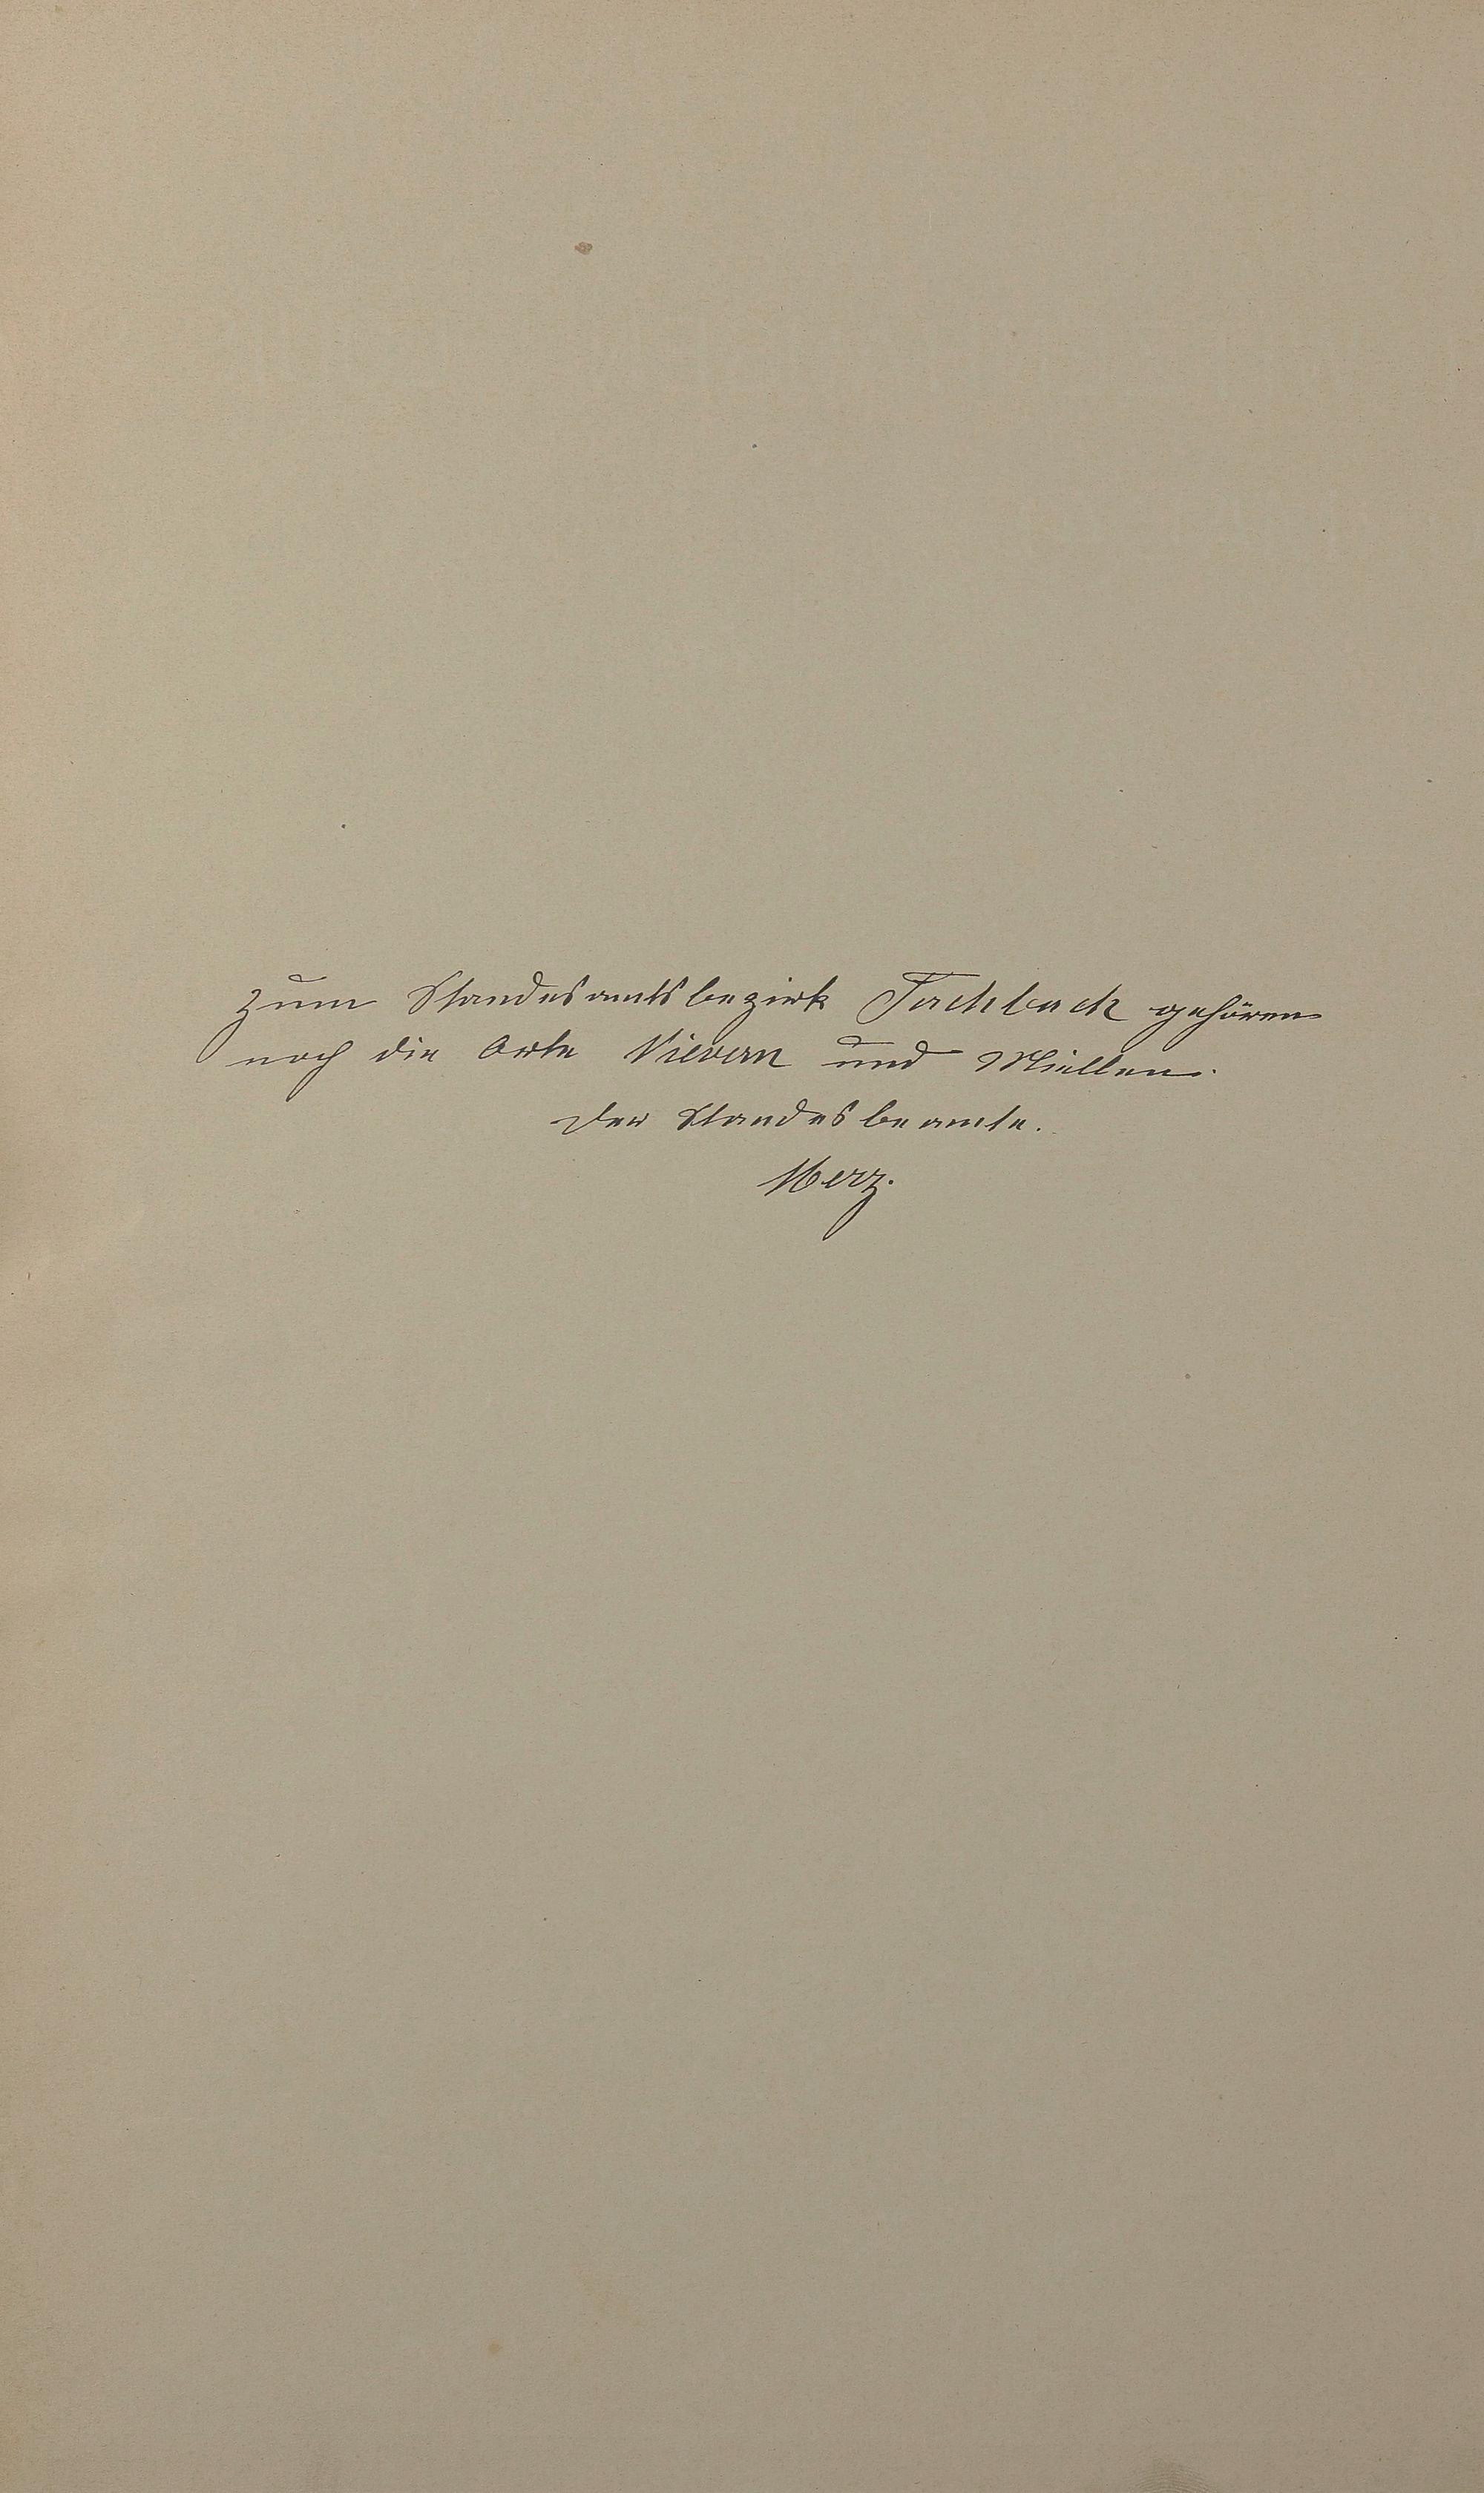 Zum Standesamtsbezirk Fachbach gehören
noch die Orte Nievern und Miellen.
Der Standesbeamte.
Merz.